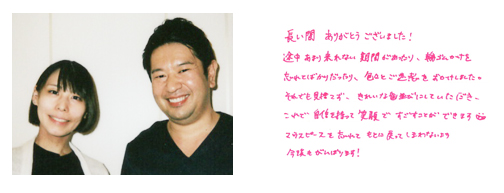 長い間 ありがとうございました!
途中 あまり来れない期間があったり、輪ゴムのつけ
忘ればかりだったり、色々とご迷惑をおかけしました。
それでも見捨てず、きれいな歯並びにしていただき、
これで自信を持って笑顔ですごすことができます
マウスピースを忘れて もとに戻ってしまわないよう
今後もがんばります!